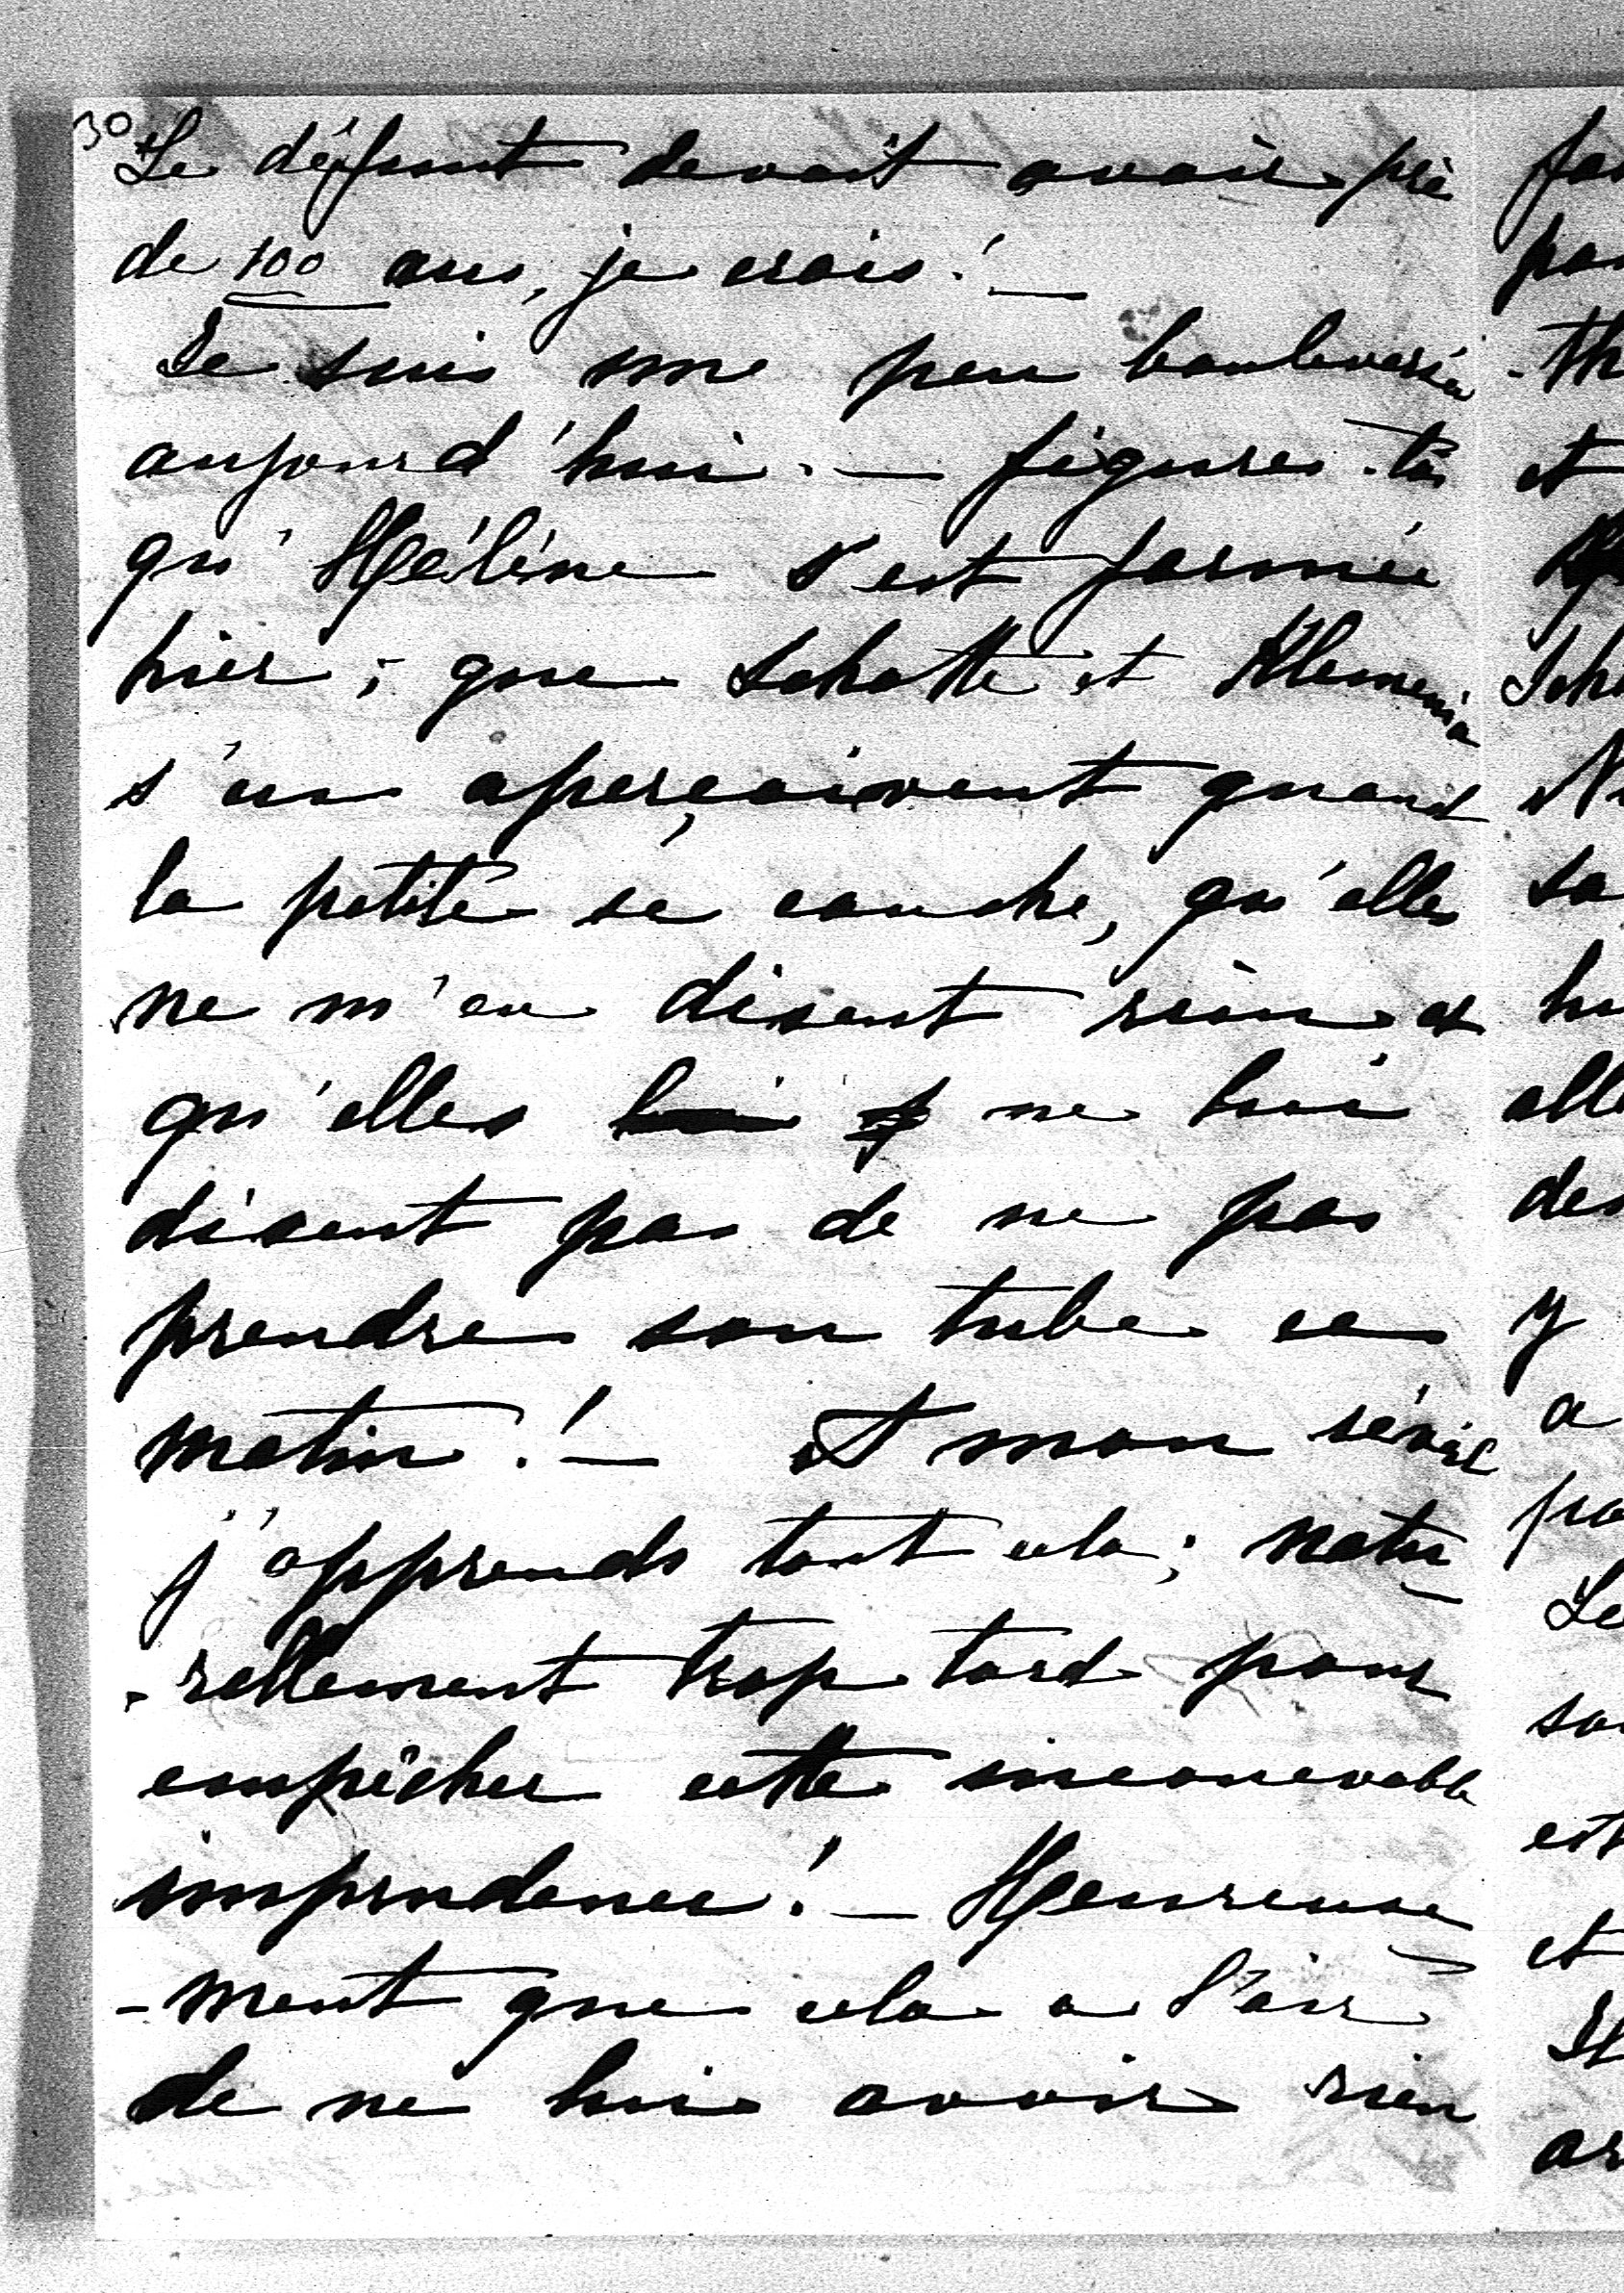 30
Le défunt devait avoir près
de 100 ans, je crois! —
Je suis une peu bouleversée
aujourd'hui. — figures-toi
qu'Hélène s'est formée
hier; que Schotte et Klemenia
s'en aperçoivent quand
la petite se couche, qu'elles
ne m'en disent rien et
qu'elles lui ne lui
disent pas de ne pas
prendre son tube ce
matin! — et mon réveil
j'apprends tout cela; natu-
-rellement trop tard pour
empêcher cette inconcevable
imprudence! — Heureuse-
-ment que cela a l'air
de ne lui avoir rien
et
y
a
et